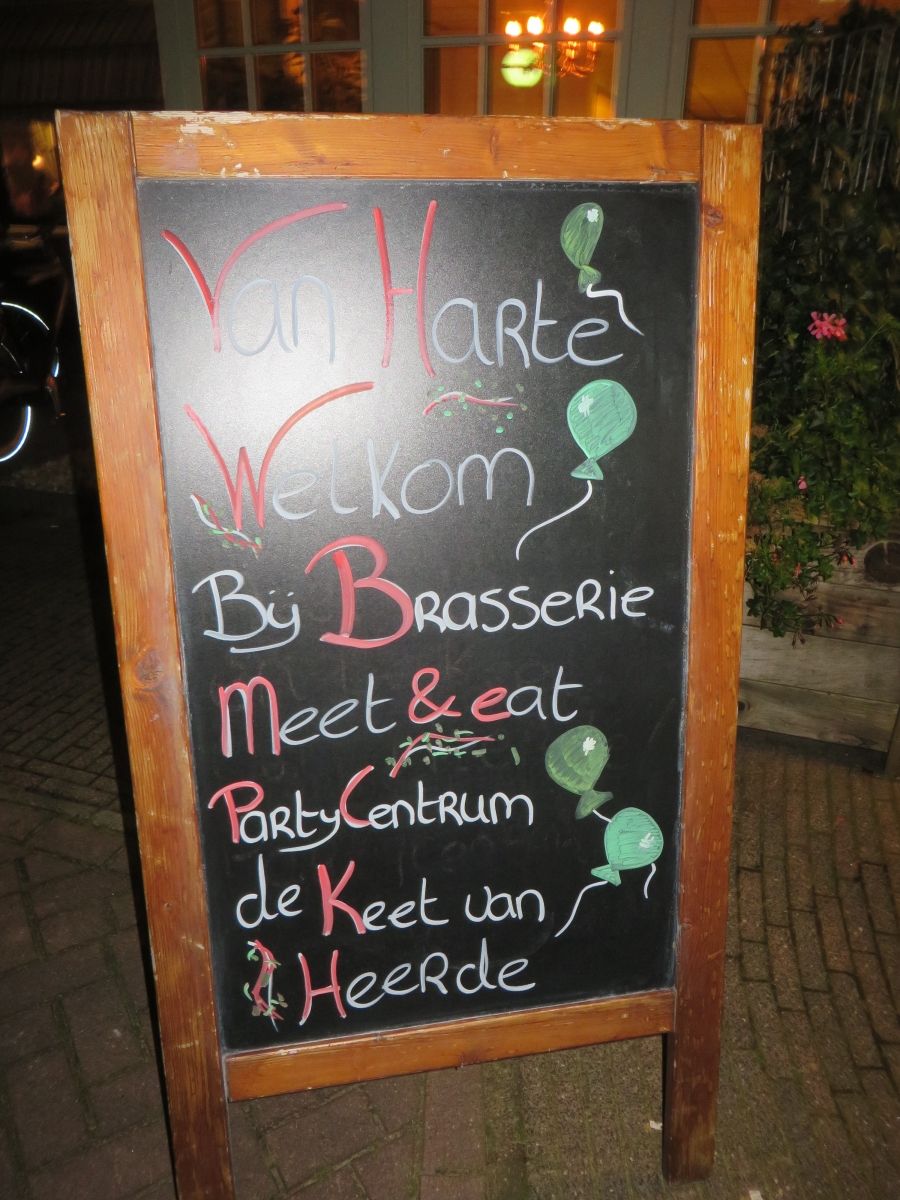 Van Harte
Welkom
Bij Brasserie
Meet & eat
PartyCentrum
de Keet van
Heerde